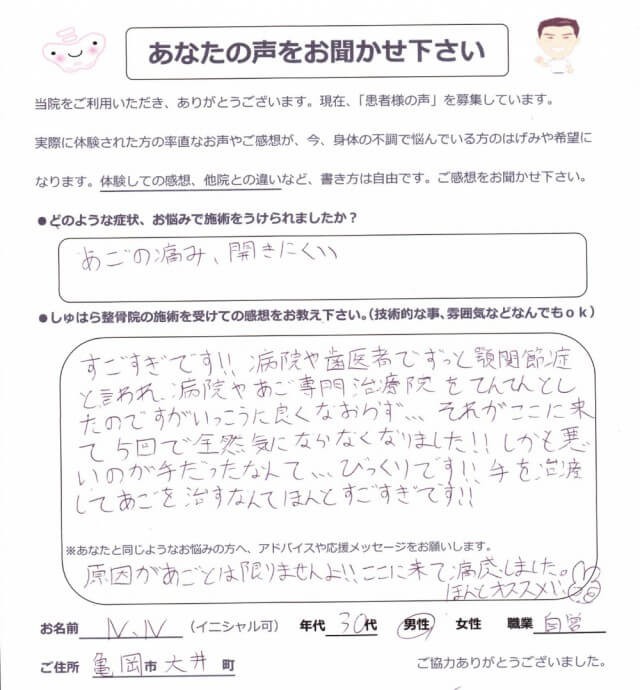 あなたの声をお聞かせ下さい
当院をご利用いただき、ありがとうございます。現在、「患者様の声」を募集しています。
実際に体験された方の率直なお声やご感想が、今、身体の不調で悩んでいる方のはげみや希望に
なります。体験しての感想、他院との違いなど、書き方は自由です。ご感想をお聞かせ下さい。
●どのような症状、お悩みで施術をうけられましたか？
あごの痛み、開きにくい
●しゅはら整骨院の施術を受けての感想をお教え下さい。（技術的な事、雰囲気などなんでもｏｋ）
すごすぎです!! 病院や歯医者でずっと顎関節症
と言われ、病院やあご専門治療院をてんてんとし
たのですがいっこうに良くなおらず、、、それがここに来
て5回で全然気にならなくなりました!! しかも悪
いのが手だったなんて、、、びっくりです!! 手を治療
してあごを治すなんてほんとすごすぎです!!
※あなたと同じようなお悩みの方へ、アドバイスや応援メッセージをお願いします。
原因があごとは限りませんよ!! ここに来て、しました。
ほんとオススメ!
お名前 N.N （イニシャル可） 年代 30代 男性 女性 職業 自営
ご住所 亀岡市 大井 町 ご協力ありがとうございました。